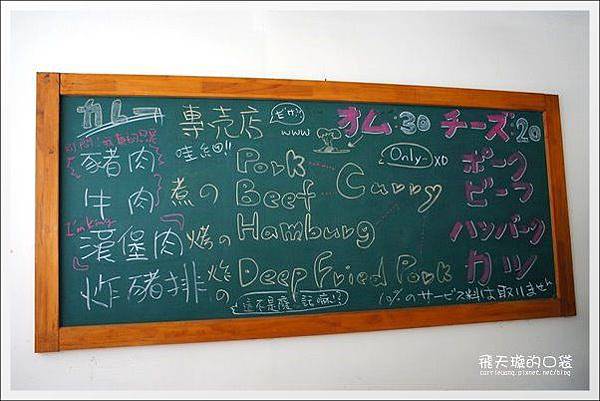 カレー 専売店 ピザ! www オム:30 チーズ:20
豬肉 哇細!! Pork Only XD ポーク
牛肉 煮の Beef Curry ビーフ
I'm King
漢堡肉 烤の Hamburg ハンバーグ
炸豬排 炸の Deep Fried Pork カツ
這不是廢話嘛!? 10%のサービス料は取りません
飛天璇的口袋
carrieyang.pixnet.net/blog